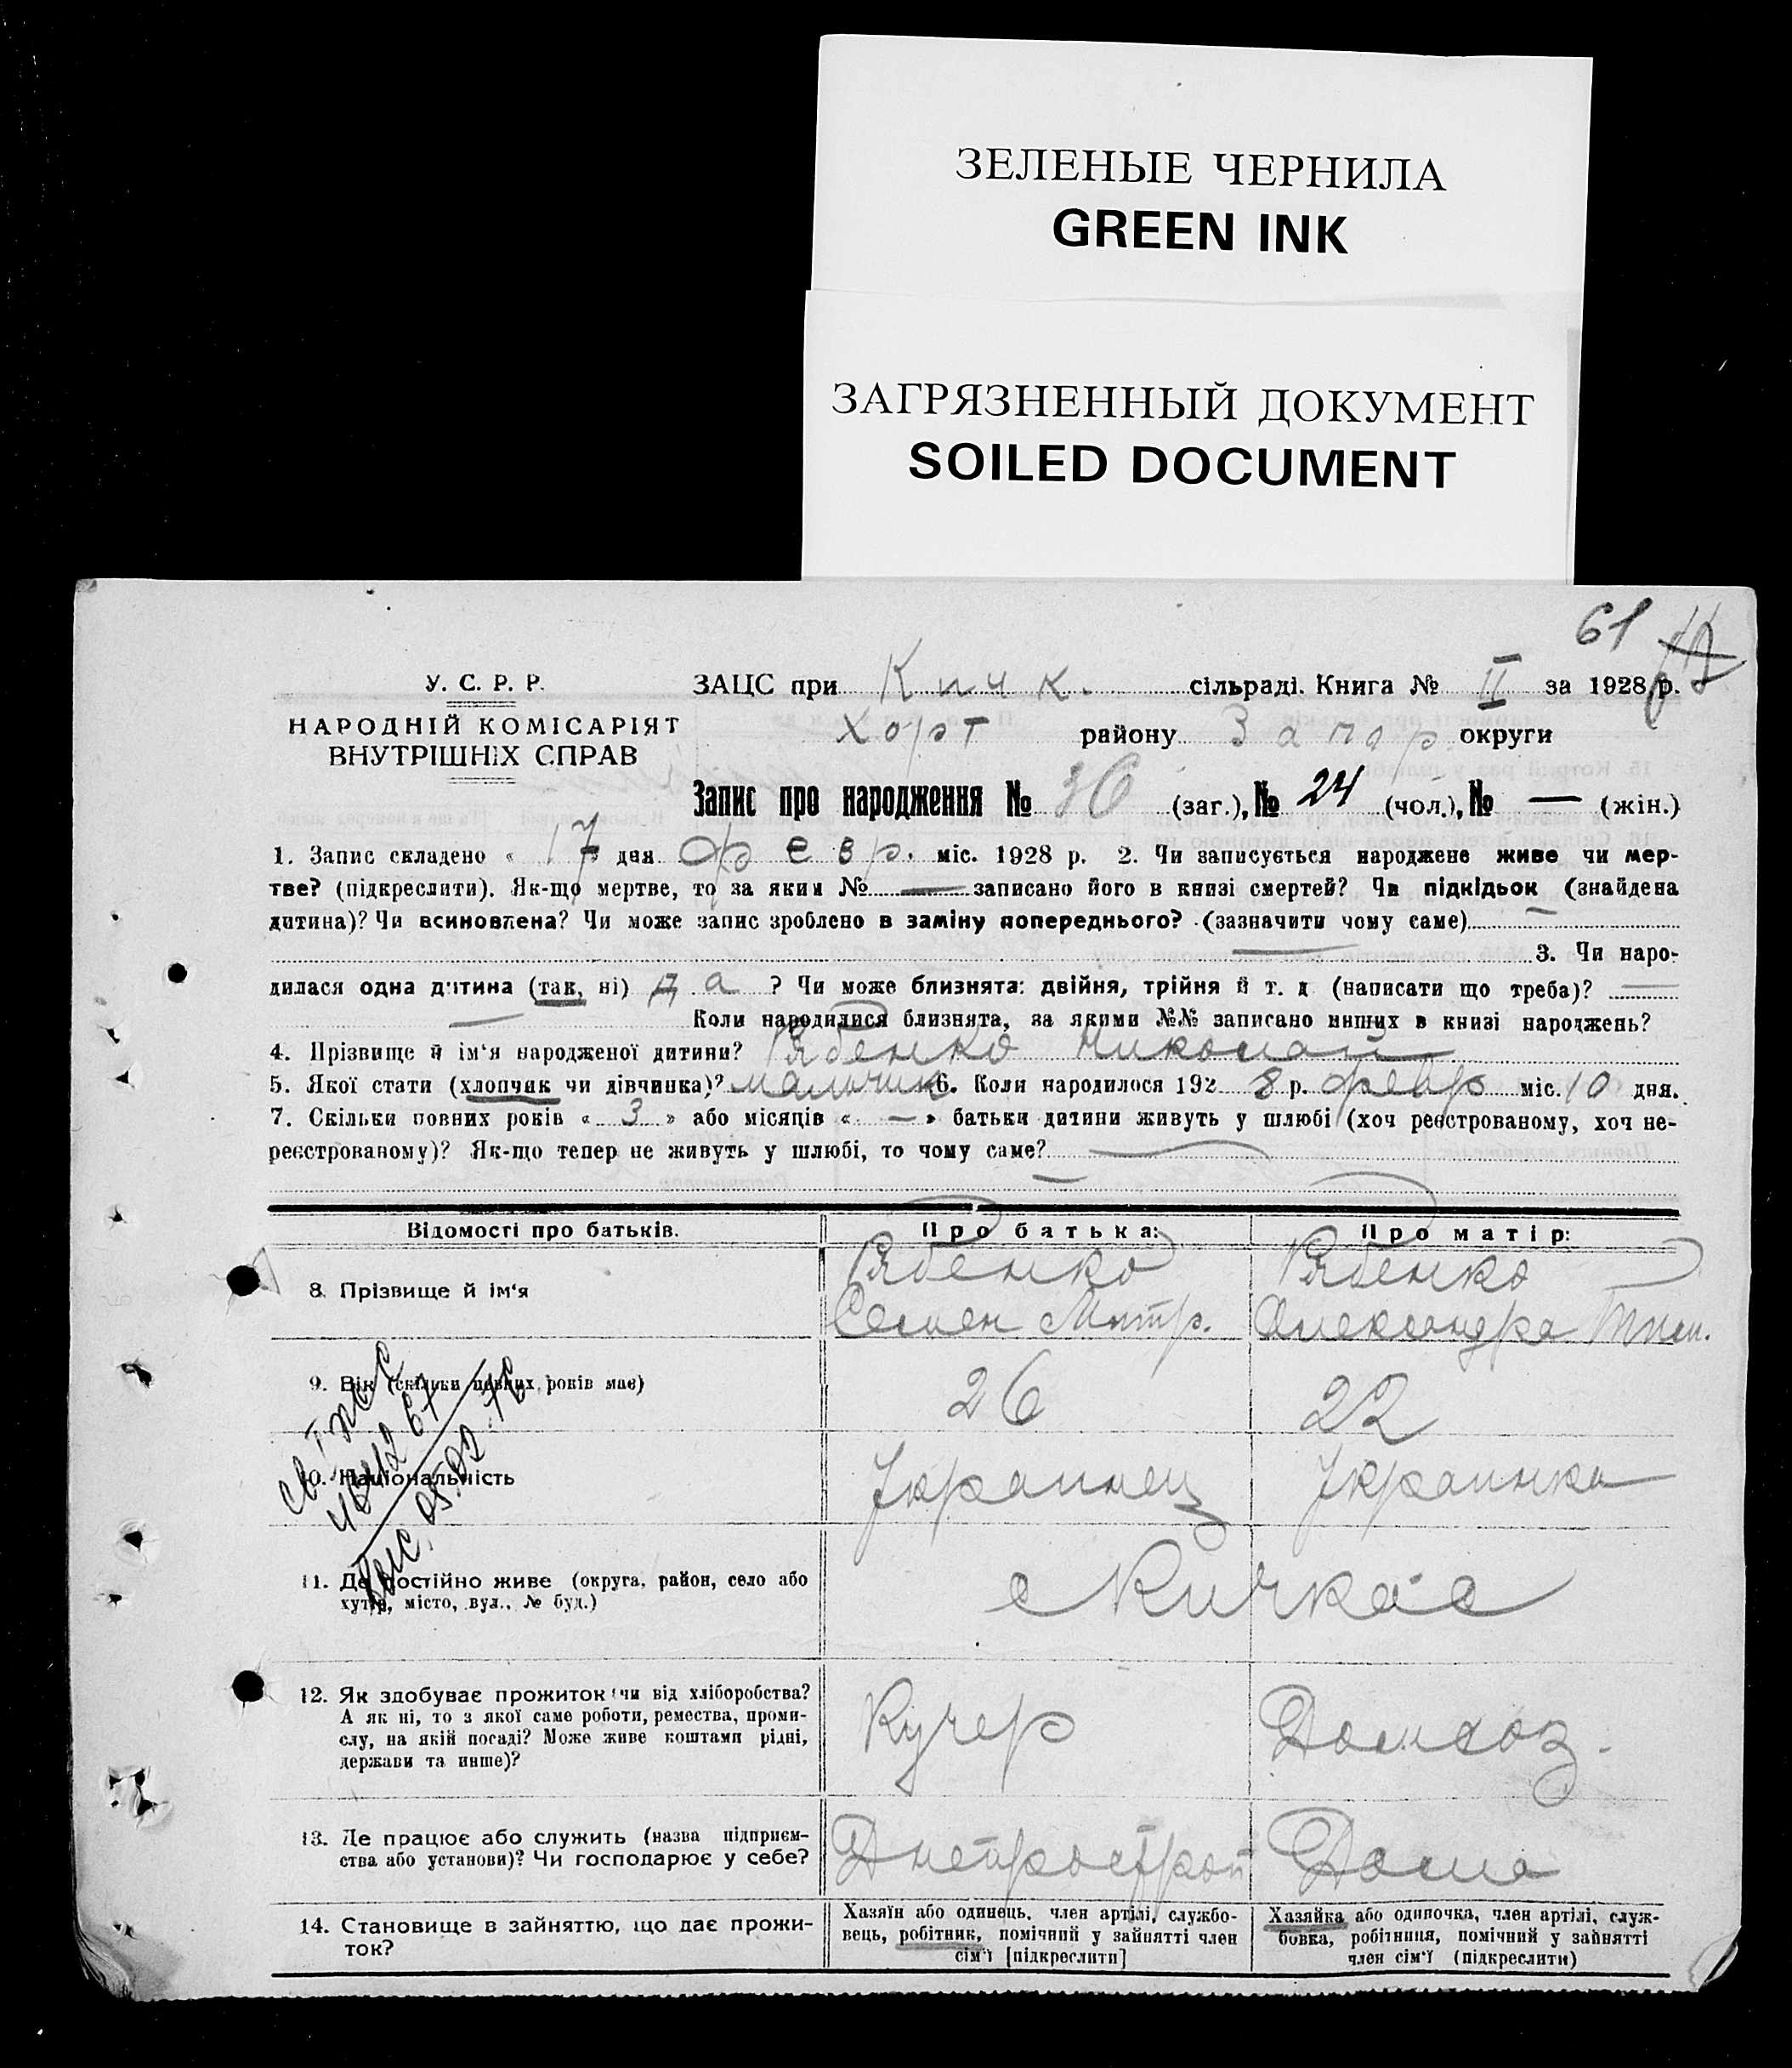 ЗЕЛЕНЫЕ ЧЕРНИЛА
GREEN INK
ЗАГРЯЗНЕННЫЙ ДОКУМЕНТ
SOILED DOCUMENT
61
У. С. Р. Р.
НАРОДНІЙ КОМІСАРІЯТ
ВНУТРІШНІХ СПРАВ
ЗАЦС при Кичк. сільраді. Книга № II за 1928 р.
Хорт району Запор. округи
Запис про народження № 36 (заг.), № 24 (чол.), № — (жін.)
1. Запис складено « 17 » дня февр. міс. 1928 р. 2. Чи записується народжене живе чи мер-
тве? (підкреслити). Як-що мертве, то за яким № — записано його в книзі смертей? Чи підкідьок (знайдена
дитина)? Чи всиновлена? Чи може запис зроблено в заміну попереднього? (зазначити чому саме) —
— 3. Чи наро-
дилася одна дитина (так, ні) да ? Чи може близнята: двійня, трійня й т. д (написати що треба)? —
— Коли народилися близнята, за якими №№ записано инших в книзі народжень?
4. Прізвище й ім'я народженої дитини? Рябенко Николай
5. Якої стати (хлопчик чи дівчинка)? мальчик 6. Коли народилося 1928 р. февр міс. 10 дня.
7. Скільки повних років « 3 » або місяців « — » батьки дитини живуть у шлюбі (хоч реєстрованому, хоч не-
реєстрованому)? Як-що тепер не живуть у шлюбі, то чому саме? —
—
Відомості про батьків. Про батька: Про матір:
8. Прізвище й ім'я Рябенко Рябенко
Семен Митр. Александра Тим.
9. Вік (скільки повних років має) 26 22
10. Національність Украинец Украинка
11. Де постійно живе (округа, район, село або
хутір, місто, вул., № буд.) с Кичкас
12. Як здобуває прожиток (чи від хліборобства?
А як ні, то з якої саме роботи, ремества, проми-
слу, на якій посаді? Може живе коштами рідні,
держави та инше)? Кучер Домхоз.
13. Де працює або служить (назва підприєм-
ства або установи)? Чи господарює у себе? Днепрострой Дома
14. Становище в зайняттю, що дає прожи-
ток?
Хазяїн або одинець, член артілі, службо-
вець, робітник, помічний у зайнятті член
сім'ї [підкреслити]
Хазяйка або одиночка, член артілі, служ-
бовка, робітниця, помічний у зайнятті
член сім'ї (підкреслити)